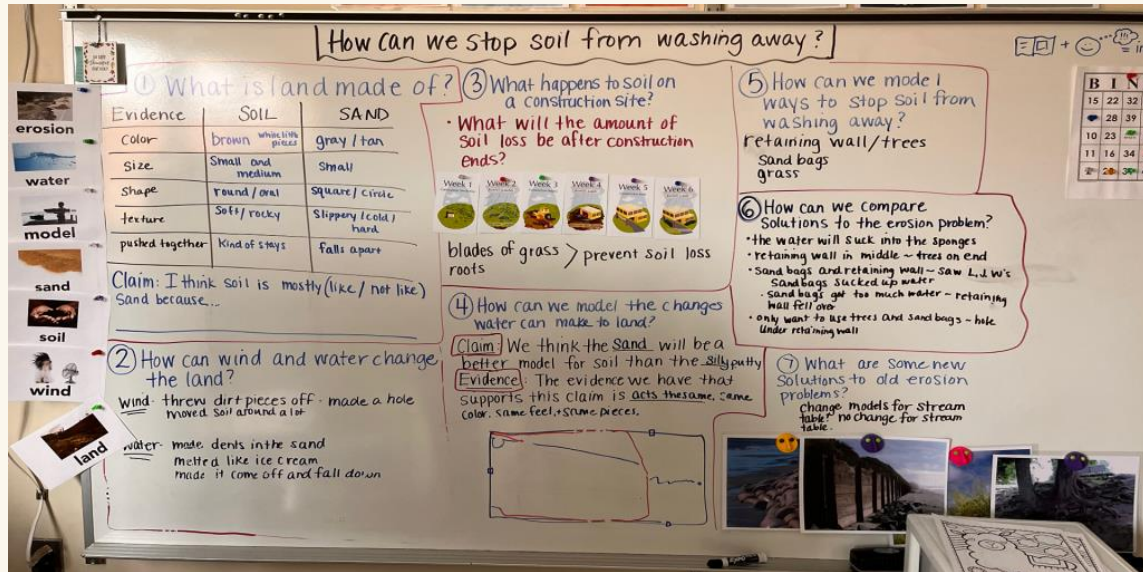 How can we stop soil from washing away?
erosion
water
model
sand
soil
wind
land
① What is land made of?
Evidence SOIL SAND
Color brown white little pieces gray/tan
Size Small and medium Small
Shape round/oval square/circle
texture Soft/rocky Slippery/cold/hard
pushed together Kind of stays falls apart
Claim: I think soil is mostly (like/not like)
Sand because...
② How can wind and water change
the land?
wind- threw dirt pieces off - made a hole
moved soil around a lot
water- made dents in the sand
melted like ice cream
made it come off and fall down
③ What happens to soil on
a construction site?
• What will the amount of
Soil loss be after construction
ends?
Week 1 Week 2 Week 3 Week 4 Week 5 Week 6
blades of grass > prevent soil loss
roots
④ How can we model the changes
water can make to land?
Claim: We think the Sand will be a
better model for soil than the sillyputty
Evidence: The evidence we have that
supports this claim is acts the same, same
color, same feel, + same pieces.
⑤ How can we model
ways to stop soil from
washing away?
retaining wall/trees
Sand bags
grass
⑥ How can we compare
Solutions to the erosion problem?
• the water will suck into the sponges
• retaining wall in middle ~ trees on end
• Sand bags and retaining wall ~ saw L.J.W's
Sandbags sucked up water
• Sand bags got too much water ~ retaining
wall fell over
• only want to use trees and Sand bags ~ hole
under retaining wall
⑦ What are some new
Solutions to old erosion
problems?
change models for stream
table? no change for stream
table.
B I N
15 22 32
28 39
10 23
11 16 34
EXPO